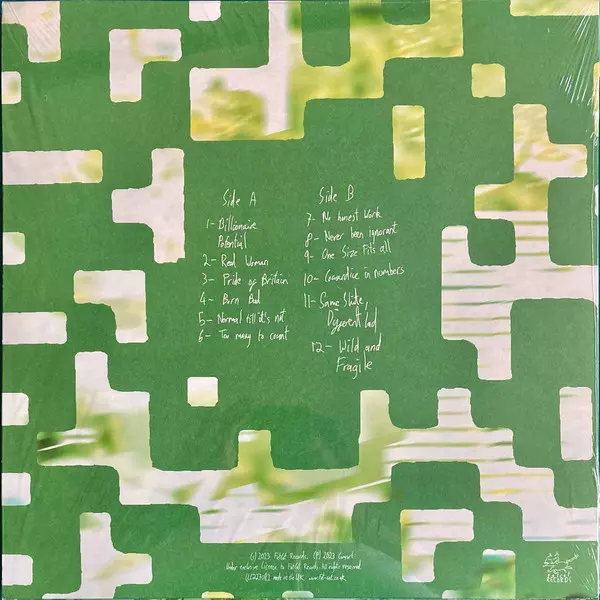 Side A
1- Billionaire
Potential
2- Real Woman
3- Pride of Britain
4- Born Bad
5- Normal till it's not
6- Too many to count
Side B
7- No honest Work
8- Never been ignorant
9- One Size Fits all
10- Cowardice in numbers
11- Same Shite,
Different lad,
12- Wild and
Fragile
(c) 2023 FatCat Records. (P) 2023
Under exclusive License to FatCat Records. All rights reserved
made in the UK.
RECORDS